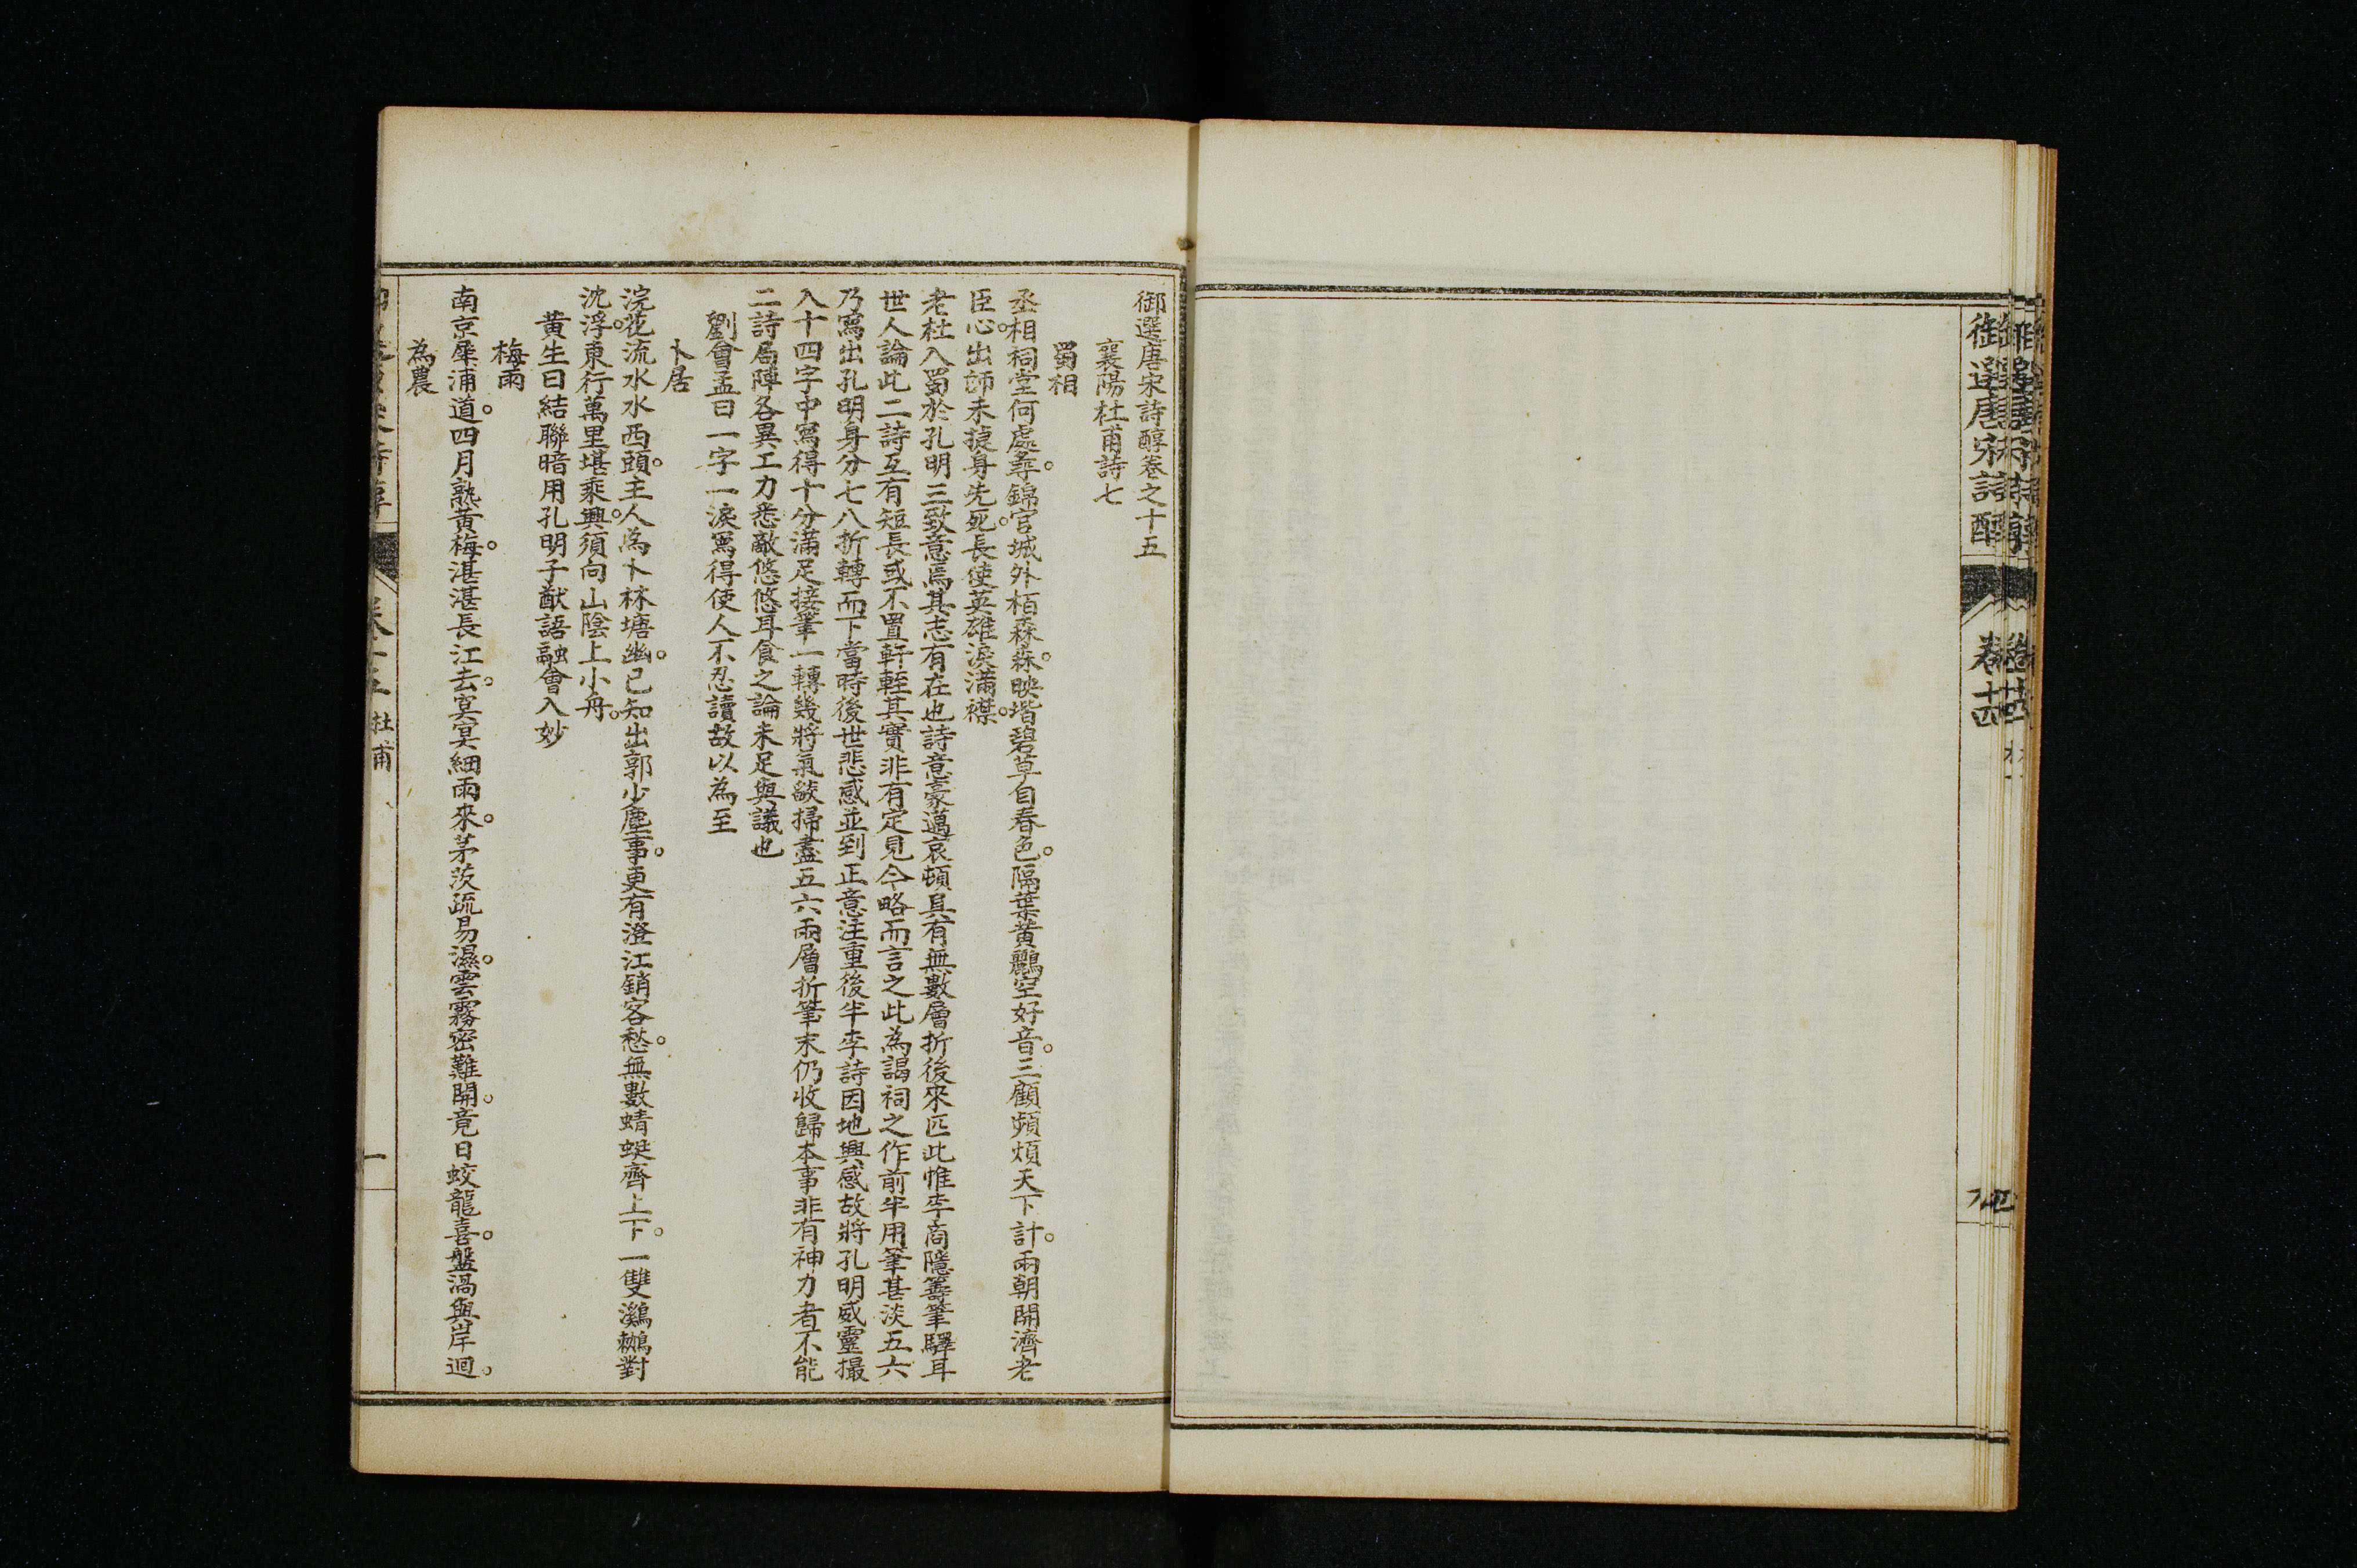 御選唐宋詩醇
卷十四
御選唐宋詩醇卷之十五
襄陽杜甫詩七
蜀相
丞相祠堂何處尋。錦官城外栢森森。映堦碧草自春色。隔葉黄鸝空好音。三顧頻煩天下計。兩朝開濟老
臣心。出師未捷身先死。長使英雄淚滿襟。
老杜入蜀於孔明三致意焉其志有在也詩意豪邁哀頓具有無數層折後來匹此惟李商隱籌筆驛耳
世人論此二詩互有短長或不置軒輊其實非有定見今略而言之此為謁祠之作前半用筆甚淡五六
乃寫出孔明身分七八折轉而下當時後世悲感並到正意注重後半李詩因地興感故將孔明威靈撮
入十四字中寫得十分滿足接筆一轉幾將氣燄掃盡五六兩層折筆末仍收歸本事非有神力者不能
二詩局陣各異工力悉敵悠悠耳食之論未足與議也
劉會孟曰一字一淚寫得使人不忍讀故以為至
卜居
浣花流水水西頭。主人為卜林塘幽。已知出郭少塵事。更有澄江銷客愁。無數蜻蜓齊上下。一雙鸂鶒對
沈浮。東行萬里堪乘興。須向山陰上小舟。
黄生曰結聯暗用孔明子猷語融會入妙
梅雨
南京犀浦道。四月熟黄梅。湛湛長江去。冥冥細雨來。茅茨疏易濕。雲霧密難開。竟日蛟龍喜。盤渦與岸迴。
為農
杜甫
一